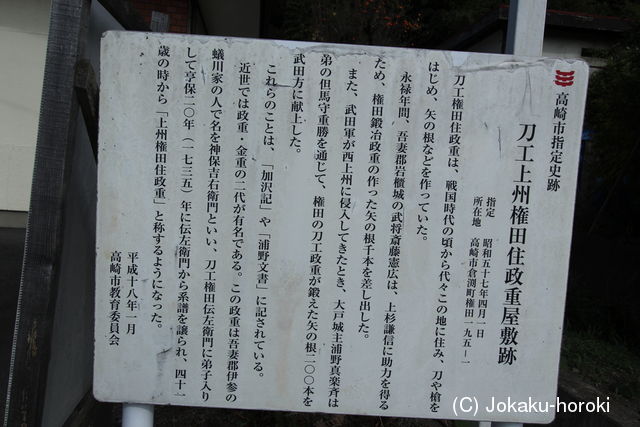 高崎市指定史跡
刀工上州権田住政重屋敷跡
指定 昭和五十七年四月一日
所在地 高崎市倉渕町権田一九五－一
刀工権田住政重は、戦国時代の頃から代々この地に住み、刀や槍を
はじめ、矢の根などを作っていた。
永禄年間、吾妻郡岩櫃城の武将斎藤憲広は、上杉謙信に助力を得る
ため、権田鍛冶政重の作った矢の根千本を差し出した。
また、武田軍が西上州に侵入してきたとき、大戸城主浦野真楽斉は
弟の但馬守重勝を通じて、権田の刀工政重が鍛えた矢の根二〇〇本を
武田方に献上した。
これらのことは、「加沢記」や「浦野文書」に記されている。
近世では政重・金重の二代が有名である。この政重は吾妻郡伊参の
蟻川家の人で名を神保吉右衛門といい、刀工権田伝左衛門に弟子入り
して享保二〇年（一七三五）年に伝左衛門から系譜を譲られ、四十一
歳の時から「上州権田住政重」と称するようになった。
平成十八年一月
高崎市教育委員会
(C) Jokaku-horoki